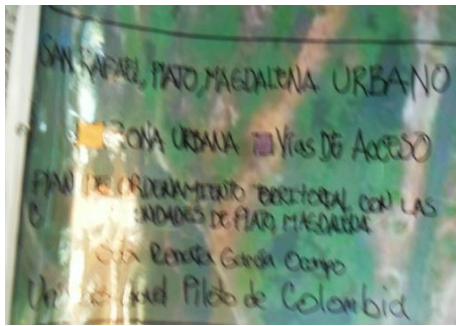 SAN RAFAEL, PLATO, MAGDALENA URBANO
ZONA URBANA VíAS DE ACCESO
PLAN DE ORDENAMIENTO TERRITORIAL CON LAS
DE PLATO MAGDALENA
Renata García Ocampo
Piloto de Colombia